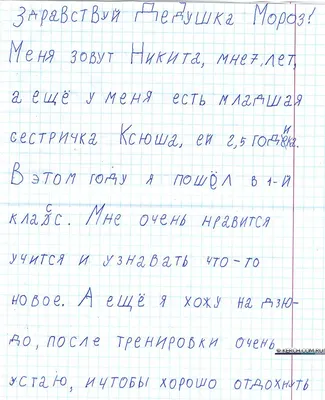 Здравствуй Дедушка Мороз!
Меня зовут Никита, мне 7 лет,
а ещё у меня есть младшая
сестричка Ксюша, ей 2,5 годика.
В этом году я пошёл в 1-й
класс. Мне очень нравится
учится и узнавать что-то
новое. А ещё я хожу на дзю-
до, после тренировки очень
устаю, и чтобы хорошо отдохнуть